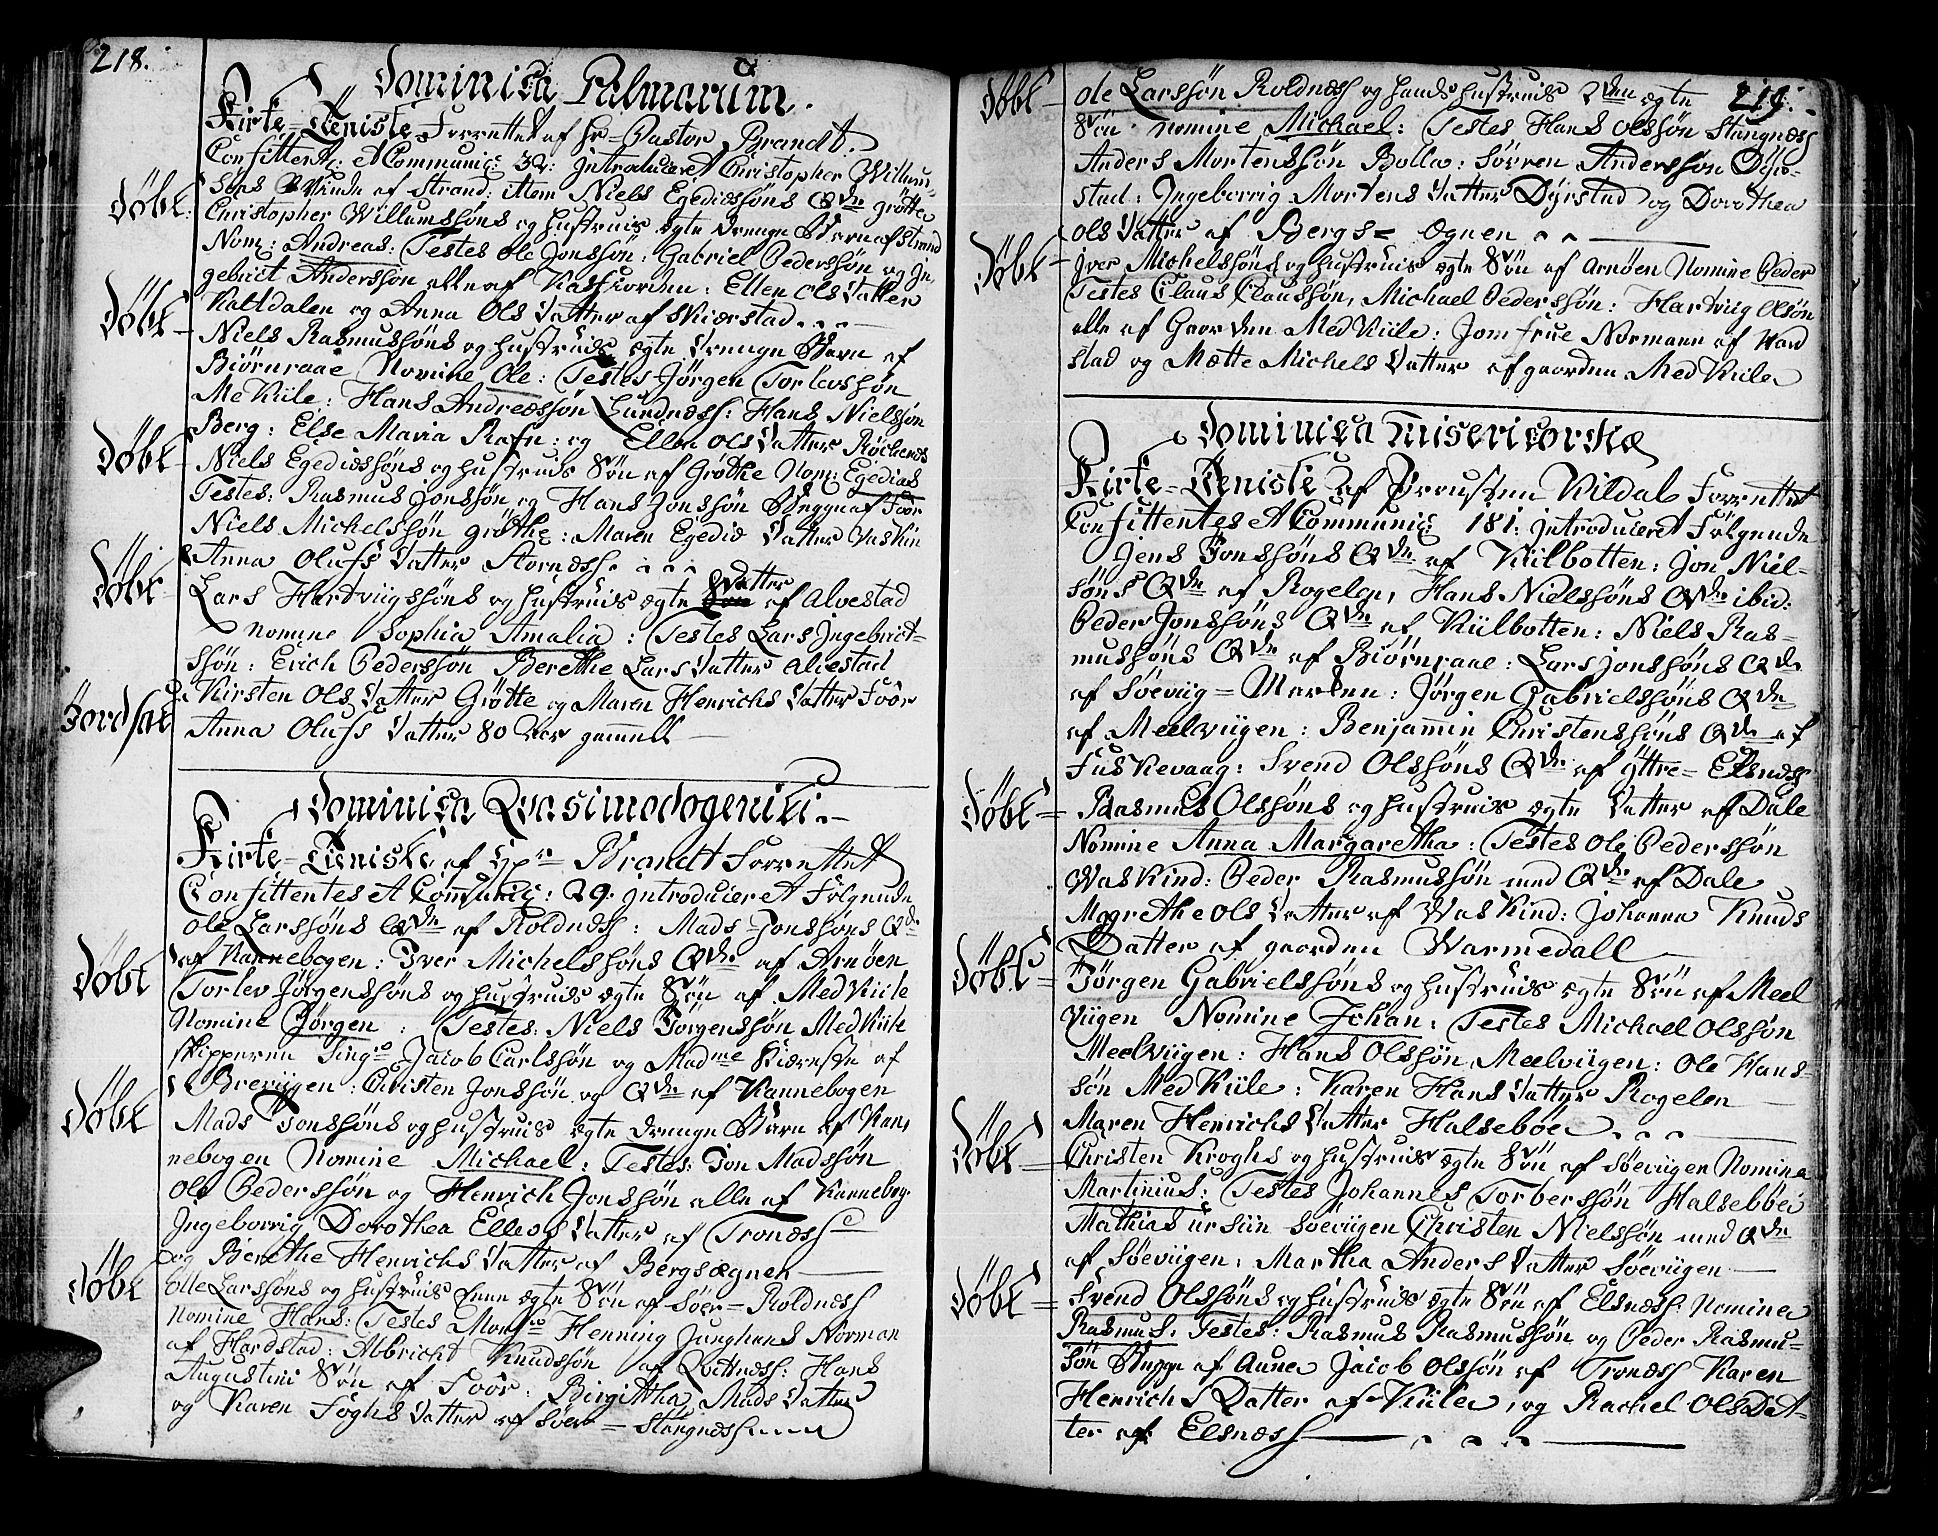 218.
Dominica Palmarum.
Kirke-Tieniste Forrettet af Hr Pastor Brandt.
Confittent: et Communic: 32: introduceret Christopher Willum-
søns Qvinde af Strand: item Niels Egediussøns Qvde Grøtte
Døbt: Christopher Willumssøns og Hustruis Ægte Drenge Barn af Strand
Nom: Andreas: Testes Ole Jonssøn: Gabriel Pederssøn og In-
gebrict Anderssøn alle af Kassfiorden: Ellen Ols Datter
Kaltdalen og Anna Ols Datter af Skiærstad
Døbt - Niels Rasmussøns og Hustruis ægte Drenge Barn af
Biørnraae Nomine Ole: Testes Jørgen Torlevssøn
MeKiile: Hans Andreassøn Lundness: Hans Nielssøn
Berg: Else Maria Rafn: og Ellen Ols Datter
Døbt - Niels Egediussøns og Hustruis Søn af Grøthe Nom: Egedius
Testes: Rasmus Jonssøn og Hans Jonssøn Begge af Foor
Niels Michelssøn Grøthe: Maren Egedie Datter Vaskin
Anna Olufs Datter Stornæss.
Døbt - Lars Hartviigssøns og Hustruis ægte Datter af Alvestad
Nomine Sophia Amalia: Testes Lars Ingebrict-
søn: Erich Pederssøn Berethe Lars Datter Alvestad
Kirsten Ols Datter Grøtte og Maren Henrichs Datter Foor
Jordfæst Anna Olufs Datter 80 Aar gammell
Dominica Qvasimodogeniti.
Kirke-Tieniste af Hr Brandt Forrettet
Confittentes et Communic: 29: introducieret Følgende
Ole Larssøns Qvde af Roldness: Mads Jonssøns Qvde
af Kannebogen: Iver Michelssøns Qvde af Arnøen
Døbt Torlev Jørgenssøns og Hustruis ægte Søn af MedKiile
Nomine Jørgen: Testes: Niels Jørgenssøn MedKiile
Skipperen Sing Jacob Carlssøn og Madme Kiæreste af
Breviigen: Christen Jonssøn og Qvde af Kannebogen
Døbt Mads Jonssøns og Hustruis ægte Drenge Barn af Kan-
nebogen Nomine Michael: Testes: Jon Madssøn
Ole Pederssøn og Henrich Jonssøn alle af Kannebog.
Ingeborrig Dorothea Ellevs Datter af Tronæss
og Berethe Henrichs Datter af Bergsægnen
Døbt Olle Larssøns og Hustruis Enne ægte Søn af Søer-Roldness
Nomine Hans: Testes Monsr Henning Junghans Norman
af Hardstad: Albricht Knudssøn af Qvitness: Hans
Augustini Søn af Foor: Birgittha Mads Datter
og Karen Foghs Datter af Søer-Stangness
219.
Døbt - Ole Larssøn Roldness og Hands Hustruis 2den ægte
Søn Nomine Michael: Testes Hans Olssøn Stangness
Anders Mortenssøn Bolla: Søvren Anderssøn Dyr-
stad: Ingeborrig Mortens Datter Dyrstad og Dorothea
Ols Datter af Bergs-Ægnen
Døbt - Iver Michelssøns og Hustruis ægte Søn af Arnøen Nomine Peder
Testes Claus Claussøn, Michael Pederssøn: Hartviig Olsøn
alle af Gaorden MedKiile: Jomfrue Normann af Hard
stad og Mætte Michels Datter af gaorden MedKiile
Dominica Misericordiæ
Kirke-Tieniste af Provsten Kildal Forrettet
Confittentes et Communic: 181: introduceret Følgende
Jens Jonssøns Qvde af Kiilbotten: Jon Niel-
søns Qvde af Rogelen, Hans Nielssøns Qvde ibid:
Peder Jonssøns Qvde af Kiilbotten: Niels Ras-
mussøns Qvde af Biørnraae: Lars Jonssøns Qvde
af Søeviig-Marken: Jørgen Gabrielssøns Qvde
af Meelviigen: Benjamin Christenssøns Qvde af
Fuskevaag: Svend Olssøns Qvde af Yttre-Elsness
Døbt - Rasmus Olssøns og Hustruis ægte Datter af Dale
Nomine Anna Margaretha: Testes Ole Pederssøn
Waskind: Peder Rasmussøn med Qvde af Dale
Magrethe Ols Datter af Waskind: Johanna Knuds
Datter af gaorden Warmedall
Døbt - Jørgen Gabrielssøns og Hustruis ægte Søn af Meel
viigen Nomine Johan: Testes Michael Olssøn
Meelviigen: Hans Olssøn Meelviigen: Ole Hans-
søn MedKiile: Karen Hans Datter Rogelen
Maren Henrichs Datter Halsebøe
Døbt - Christen Kroghs og Hustruis ægte Søn af Søeviigen Nomine
Martinius: Testes Johannes Torberssøn Halsebbøe
Mathias Ursiin Søeviigen Christen Nielssøn med Qvde
af Søeviigen: Martha Anders Datter Søeviigen
Døbt - Svend Olssøns og Hustruis ægte Søn af Elsness: Nomine
Rasmus: Testes: Rasmus Rasmussøn og Peder Rasmu-
søn Begge af Aune Jacob Olssøn af Tronæss Karen
Henrichs Datter af Kiile, og Rachel Ols Dat-
ter af Elsness